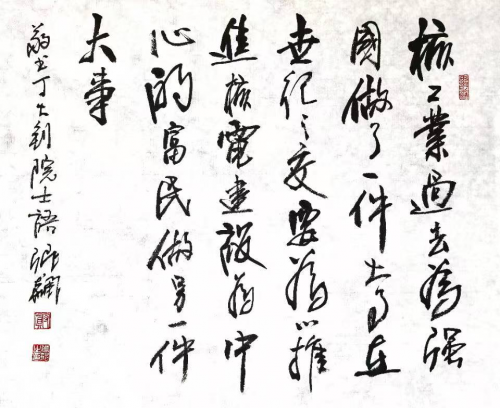 核工業過去為强
國做了一件大事在
世纪之交要為以推
進核電建設為中
心的富民做另一件
大事
敬书丁大钊院士語